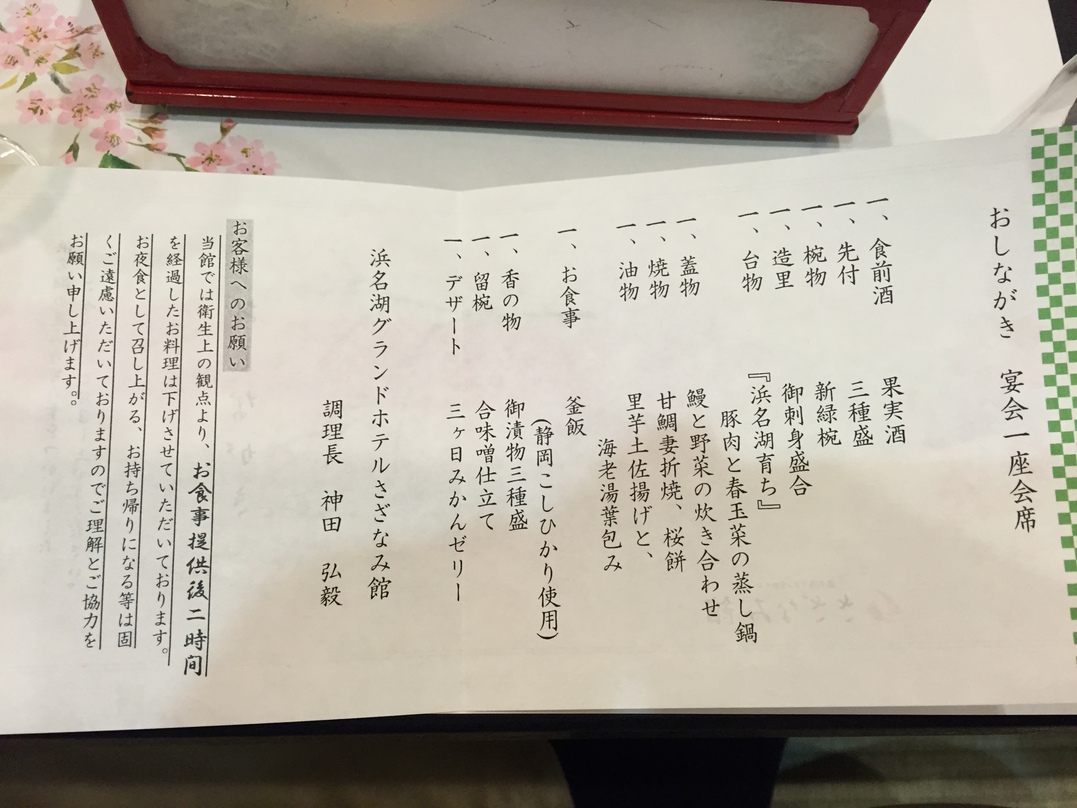 おしながき 宴会一座会席
一、食前酒 果実酒
一、先付 三種盛
一、椀物 新緑椀
一、造里 御刺身盛合
一、台物 『浜名湖育ち』
豚肉と春玉菜の蒸し鍋
一、蓋物 鰻と野菜の炊き合わせ
一、焼物 甘鯛妻折焼、桜餅
一、油物 里芋土佐揚げと、
海老湯葉包み
一、お食事 釜飯
(静岡こしひかり使用)
一、香の物 御漬物三種盛
一、留椀 合味噌仕立て
一、デザート 三ヶ日みかんゼリー
浜名湖グランドホテルさざなみ館
調理長 神田 弘毅
お客様へのお願い
当館では衛生上の観点より、お食事提供後二時間
を経過したお料理は下げさせていただいております。
お夜食として召し上がる、お持ち帰りになる等は固
くご遠慮いただいておりますのでご理解とご協力を
お願い申し上げます。